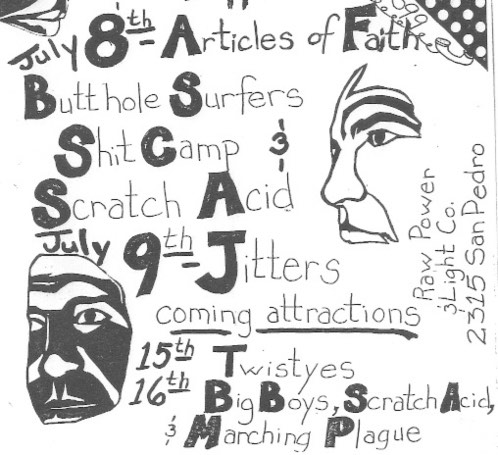 July 8th - Articles of Faith
Butthole Surfers
Shit Camp &
Scratch Acid
July 9th - Jitters
coming attractions
15th Twistyes
16th Big Boys, Scratch Acid,
& Marching Plague
Raw Power
& Light Co.
2315 San Pedro